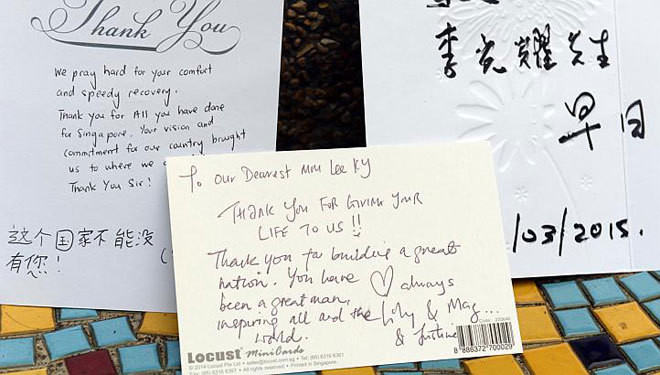 Thank You
We pray hard for your comfort
and speedy recovery.
Thank you for All you have done
for Singapore. Your vision and
commitment for our country brought
us to where we
Thank You Sir!
这个国家不能没
有您！
李光耀先生
早日
/03/2015.
To Our Dearest MM Lee KY
THANK YOU FOR GIVING YOUR
LIFE TO US!!
Thank you for building a great
nation. You have ♡ always
been a great man,
inspiring all and the
world.
Lily & Mag...
&
Locust MiniCards
© 2014 Locust Pte Ltd • sales@locust.com.sg • Tel: (65) 6316 6361
Fax: (65) 6316 6361 • All rights reserved • Printed in Singapore.
8 886372 700029